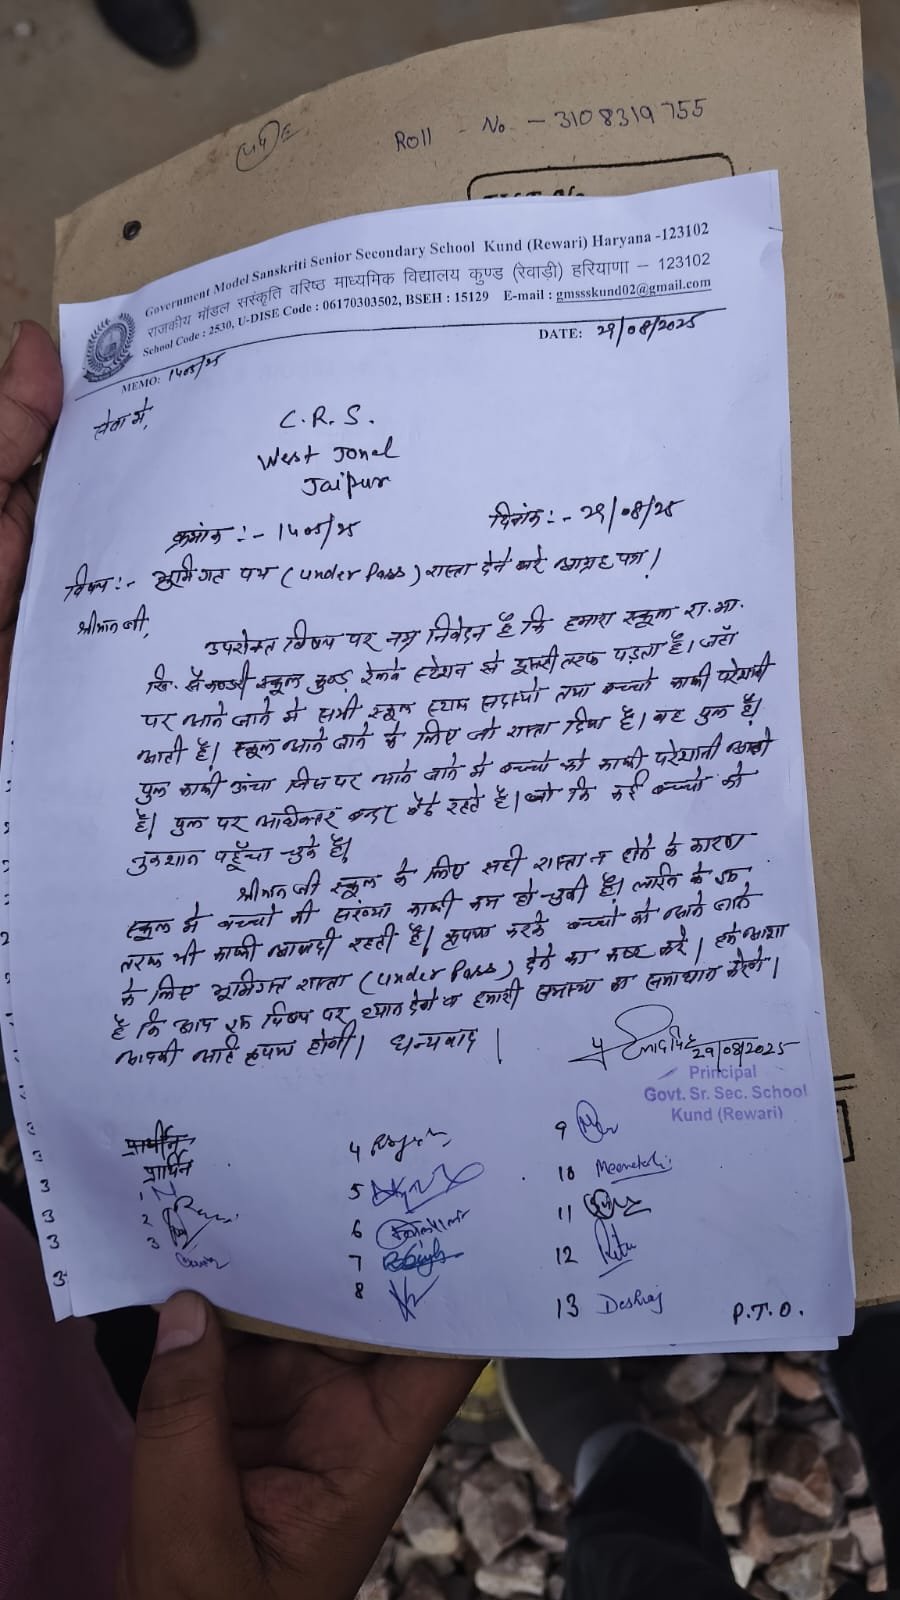 Roll - No. - 3108319755
Government Model Sanskriti Senior Secondary School Kund (Rewari) Haryana -123102
राजकीय मॉडल संस्कृति वरिष्ठ माध्यमिक विद्यालय कुण्ड (रेवाड़ी) हरियाणा – 123102
School Code : 2530, U-DISE Code : 06170303502, BSEH : 15129 E-mail : gmssskund02@gmail.com
MEMO: 1405/25
DATE: 29/08/2025
सेवा में,
C.R.S.
West Jonal
Jaipur
क्रमांक :- 1405/25
दिनांक :- 29/08/25
विषय :- भूमिगत पथ (Under Pass) रास्ता देने बारे आग्रह पत्र।
श्रीमान जी,
उपरोक्त विषय पर नम्र निवेदन है कि हमारा स्कूल रा.मा.
सि. सैकण्डरी स्कूल कुण्ड़ रेलवे स्टेशन से दूसरी तरफ पड़ता है। जहाँ
पर आने जाने में सभी स्कूल स्टाफ सदस्यो तथा बच्चो काफी परेशानी
आती है। स्कूल आने जाने के लिए जो रास्ता दिया है। वह पुल है।
पुल काफी ऊंचा जिस पर आने जाने मे बच्चो को काफी परेशानी आती
है। पुल पर अधिकतर बन्दर बैठे रहते है। जो कि कई बच्चो को
नुकशान पहूँचा चुके है।
श्रीमान जी स्कूल के लिए सही रास्ता न होने के कारण
स्कूल मे बच्चो की संख्या काफी कम हो चुकी है। लाईन के एक
तरफ भी काफी आबादी रहती है। कृपया करके बच्चो को आने जाने
के लिए भूमिगत रास्ता (Under Pass) देने का कष्ट करे। हमे आशा
है कि आप इस विषय पर ध्यान देगे व हमारी समस्या का समाधान करेगे।
आपकी अति कृपया होगी। धन्यवाद।
29/08/2025
Principal
Govt. Sr. Sec. School
Kund (Rewari)
प्रार्थीन
प्रार्थिन
1
2
3
4
5
6
7
8
9
10 Meenakshi
11
12 Ritu
13 Deshraj
P.T.O.